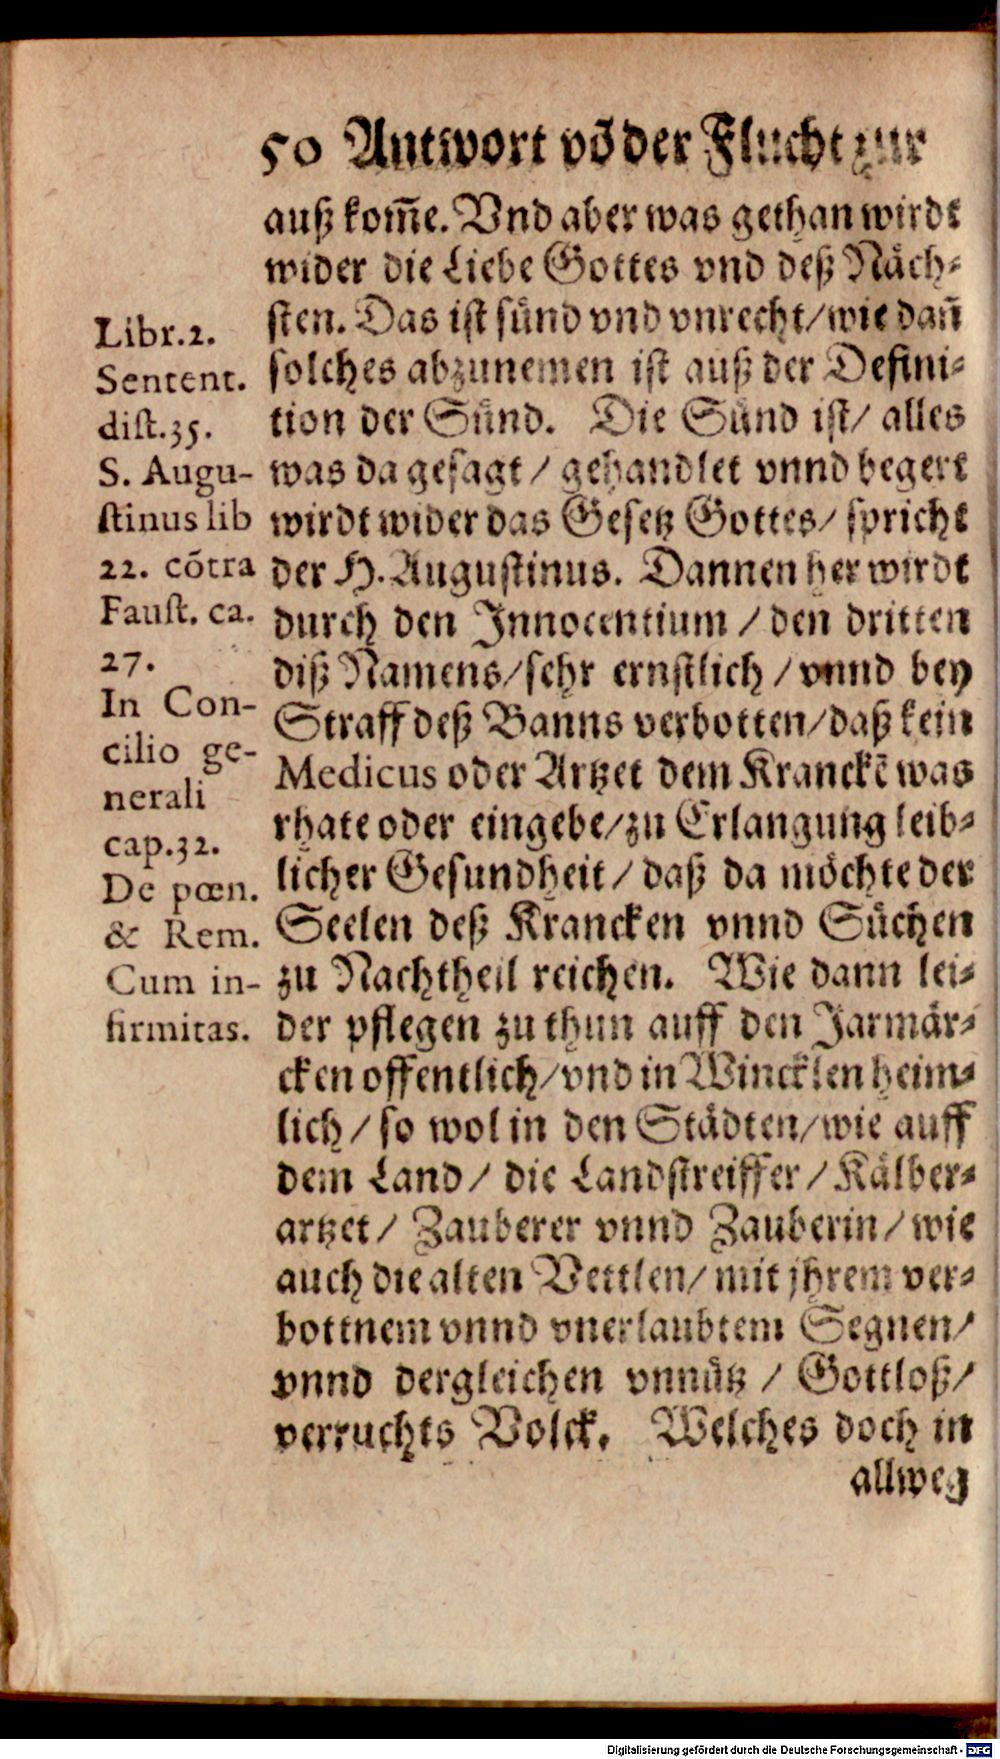 50 Antwort võ der Flucht zur
auß kom̃e. Vnd aber was gethan wirdt
wider die Liebe Gottes vnd deß Nåch-
sten. Das ist sůnd vnd vnrecht/wie dañ
solches abzunemen ist auß der Defini-
tion der Sůnd. Die Sůnd ist/ alles
was da gesagt / gehandlet vnnd begert
wirdt wider das Gesetz Gottes/ spricht
der H. Augustinus. Dannen her wirdt
durch den Innocentium / den dritten
diß Namens/sehr ernstlich / vnnd bey
Straff deß Banns verbotten/daß kein
Medicus oder Artzet dem Kranckẽ was
rhate oder eingebe/zu Erlangung leib-
licher Gesundheit / daß da möchte der
Seelen deß Krancken vnnd Sůchen
zu Nachtheil reichen. Wie dann lei-
der pflegen zu thun auff den Jarmår-
cken offentlich/vnd in Wincklen heim-
lich / so wol in den Stådten/wie auff
dem Land / die Landstreiffer / Kålber-
artzet / Zauberer vnnd Zauberin / wie
auch die alten Vettlen/ mit jhrem ver-
bottnem vnnd vnerlaubtem Segnen/
vnnd dergleichen vnnůtz / Gottloß/
verruchts Volck. Welches doch in
allweg
Libr.2.
Sentent.
dist.35.
S. Augu-
stinus lib
22. cõtra
Faust. ca.
27.
In Con-
cilio ge-
nerali
cap.32.
De pœn.
& Rem.
Cum in-
firmitas.
Digitalisierung gefördert durch die Deutsche Forschungsgemeinschaft - DFG